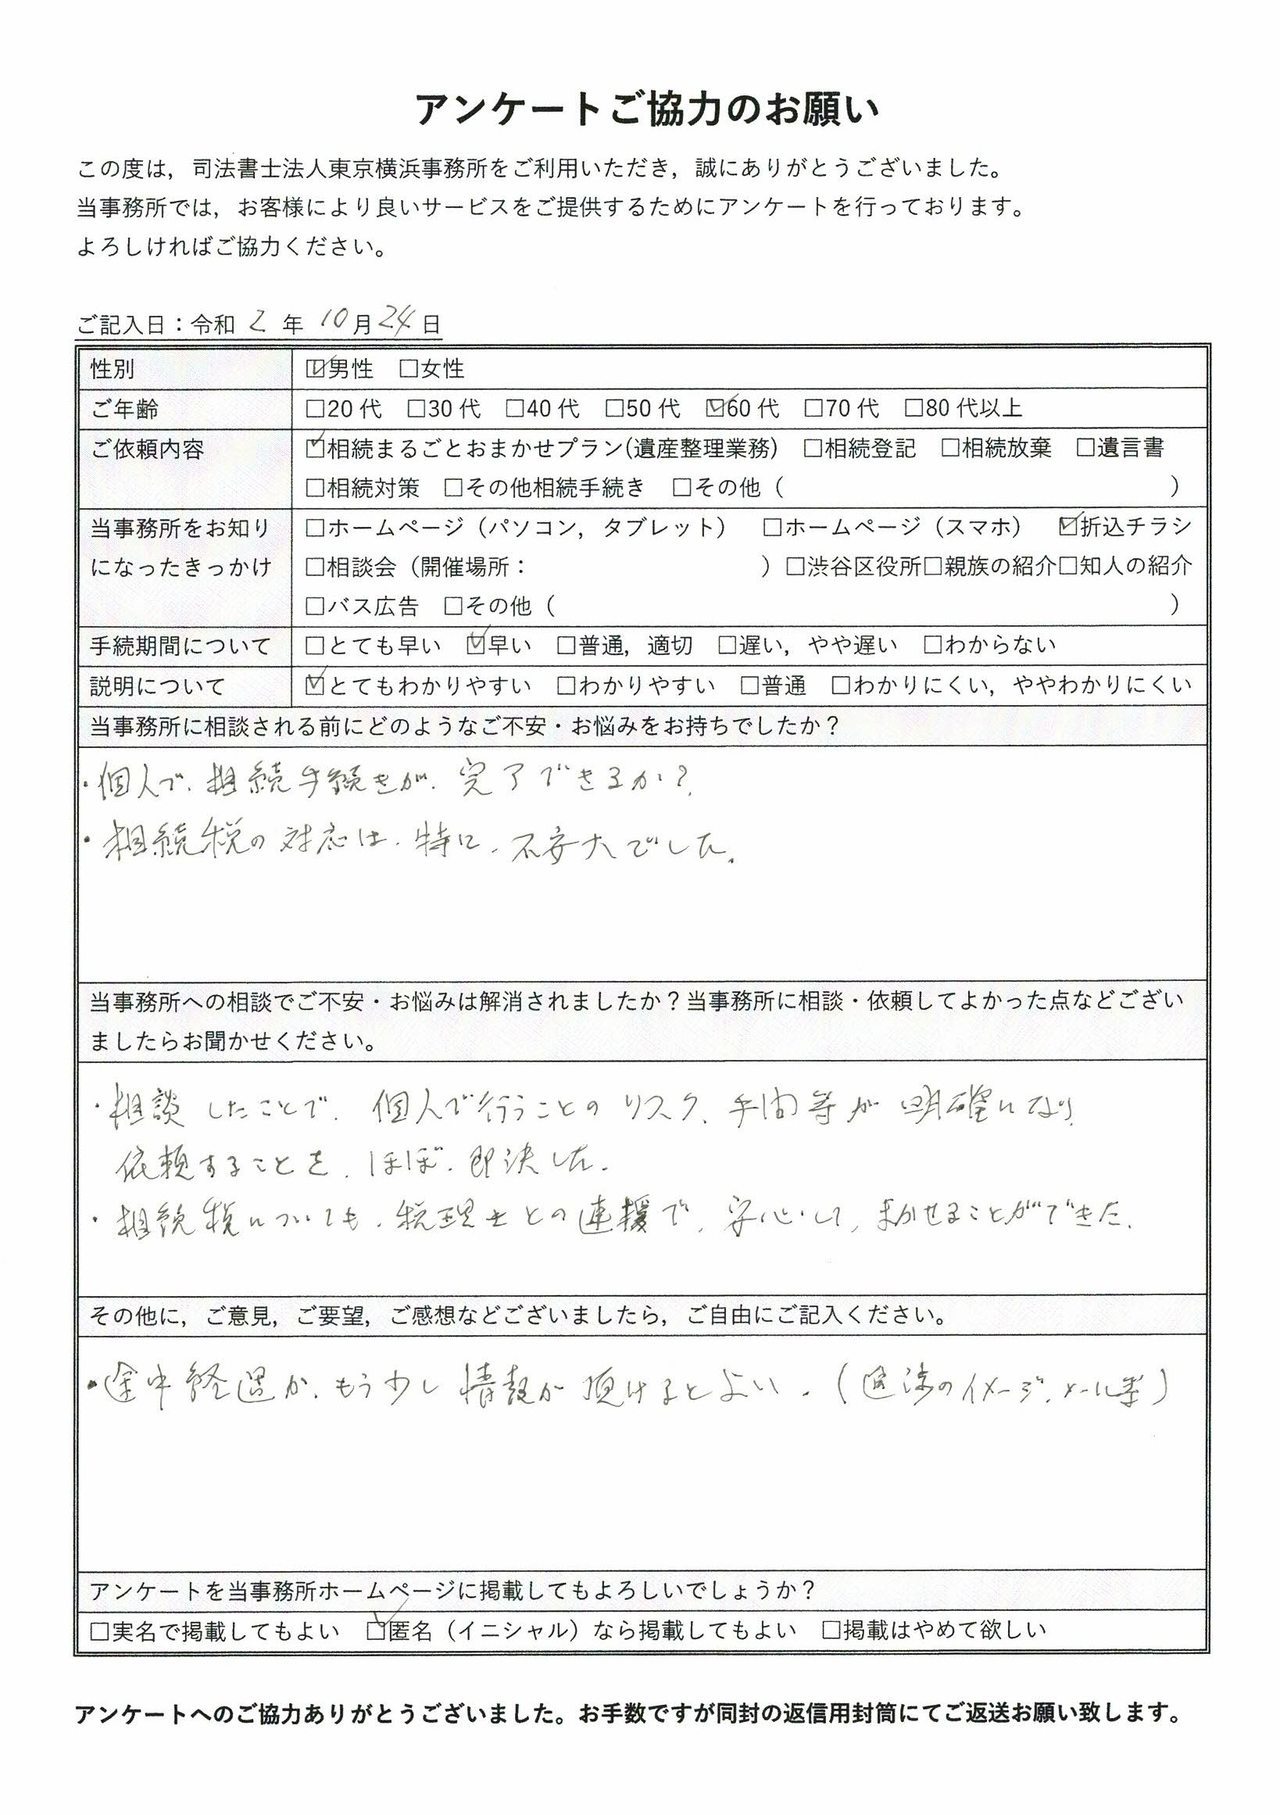 アンケートご協力のお願い
この度は，司法書士法人東京横浜事務所をご利用いただき，誠にありがとうございました。
当事務所では，お客様により良いサービスをご提供するためにアンケートを行っております。
よろしければご協力ください。
ご記入日：令和 2 年 10月24日
性別 ☑男性 □女性
ご年齢 □20代 □30代 □40代 □50代 ☑60代 □70代 □80代以上
ご依頼内容 ☑相続まるごとおまかせプラン(遺産整理業務) □相続登記 □相続放棄 □遺言書
□相続対策 □その他相続手続き □その他（ ）
当事務所をお知り □ホームページ（パソコン，タブレット） □ホームページ（スマホ） ☑折込チラシ
になったきっかけ □相談会（開催場所： ）□渋谷区役所□親族の紹介□知人の紹介
□バス広告 □その他（ ）
手続期間について □とても早い ☑早い □普通，適切 □遅い，やや遅い □わからない
説明について ☑とてもわかりやすい □わかりやすい □普通 □わかりにくい，ややわかりにくい
当事務所に相談される前にどのようなご不安・お悩みをお持ちでしたか？
・個人で、相続手続きが、完了できるか？
・相続税の対応は、特に、不安大でした。
当事務所への相談でご不安・お悩みは解消されましたか？当事務所に相談・依頼してよかった点などござい
ましたらお聞かせください。
・相談したことで、個人で行うことのリスク、手間等が明確になり
依頼することを、ほぼ、即決した。
・相続税についても、税理士との連携で、安心して、まかせることができた。
その他に，ご意見，ご要望，ご感想などございましたら，ご自由にご記入ください。
・途中経過が、もう少し情報が頂けるとよい。（のイメージ、メール等）
アンケートを当事務所ホームページに掲載してもよろしいでしょうか？
□実名で掲載してもよい ☑匿名（イニシャル）なら掲載してもよい □掲載はやめて欲しい
アンケートへのご協力ありがとうございました。お手数ですが同封の返信用封筒にてご返送お願い致します。